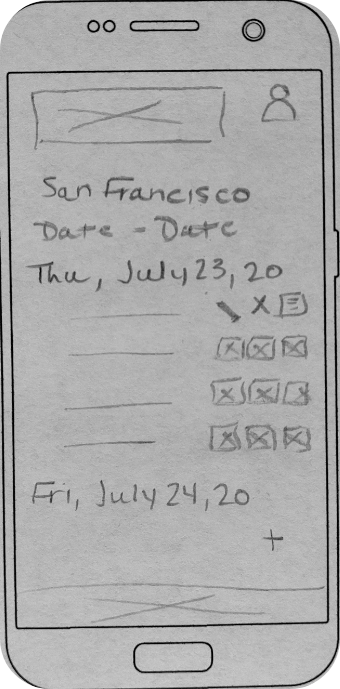 San Francisco
Date - Date
Thu, July 23, 20
Fri, July 24, 20